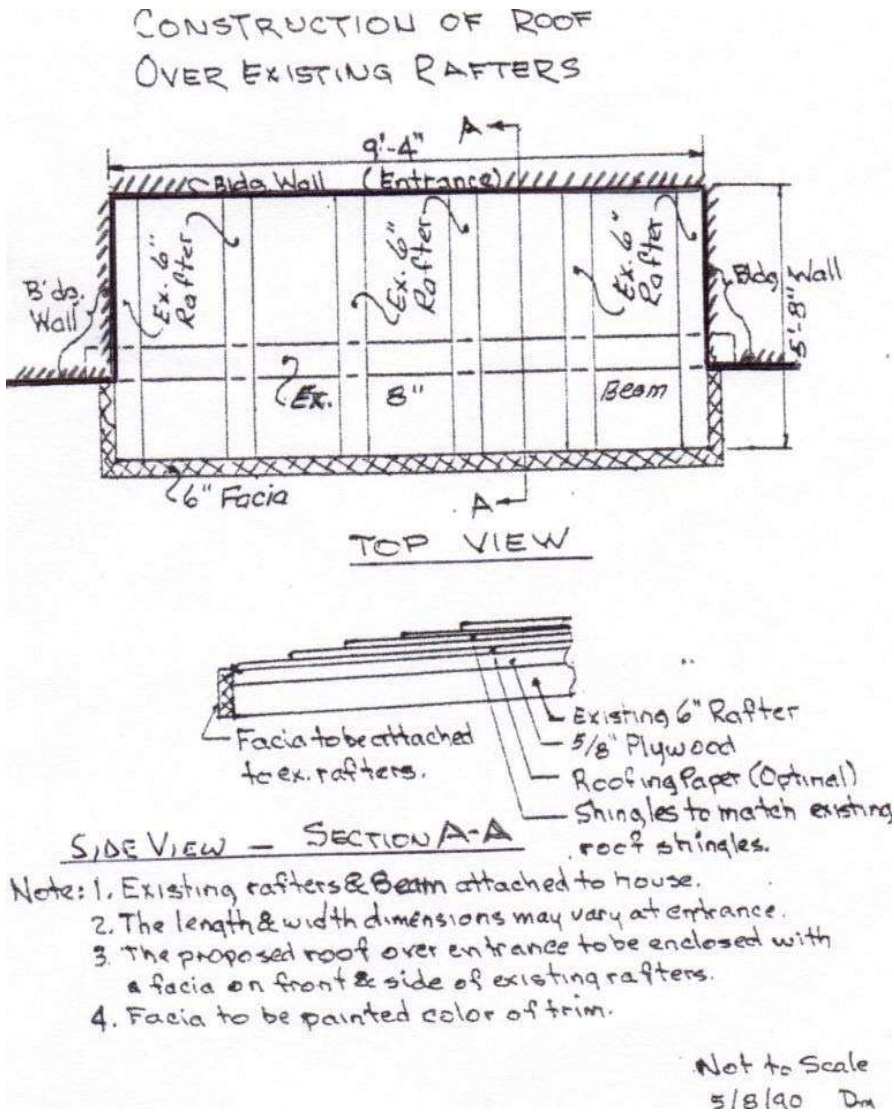 CONSTRUCTION OF ROOF
OVER EXISTING RAFTERS
A
9'-4"
Bldg Wall (Entrance)
B'dg. Wall
Ex. 6" Rafter
Ex. 6" Rafter
Ex. 6" Rafter
Bldg Wall
5'-8"
Ex. 8" Beam
6" Facia
A
TOP VIEW
Existing 6" Rafter
5/8" Plywood
Roofing Paper (Optinal)
Shingles to match existing
roof shingles.
Facia to be attached
to ex. rafters.
SIDE VIEW - SECTION A-A
Note: 1. Existing rafters & Beam attached to house.
2. The length & width dimensions may vary at entrance.
3. The proposed roof over entrance to be enclosed with
a facia on front & side of existing rafters.
4. Facia to be painted color of trim.
Not to Scale
5/8/90 Dm